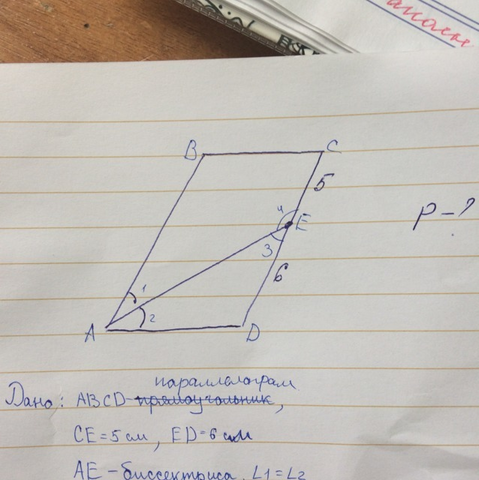 B
C
5
4
E
P-?
3
6
1
2
A
D
параллелограм
Дано: ABCD прямоугольник,
CE=5см, ED=6см
AE-биссектриса, L1=L2